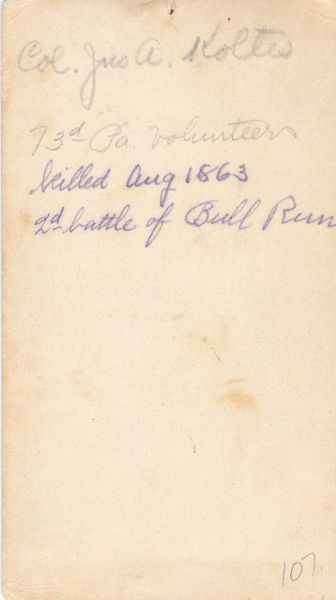 Col. Jno A. Koltes
73d Pa. Volunteers
killed Aug 1863
2d battle of Bull Run
107.